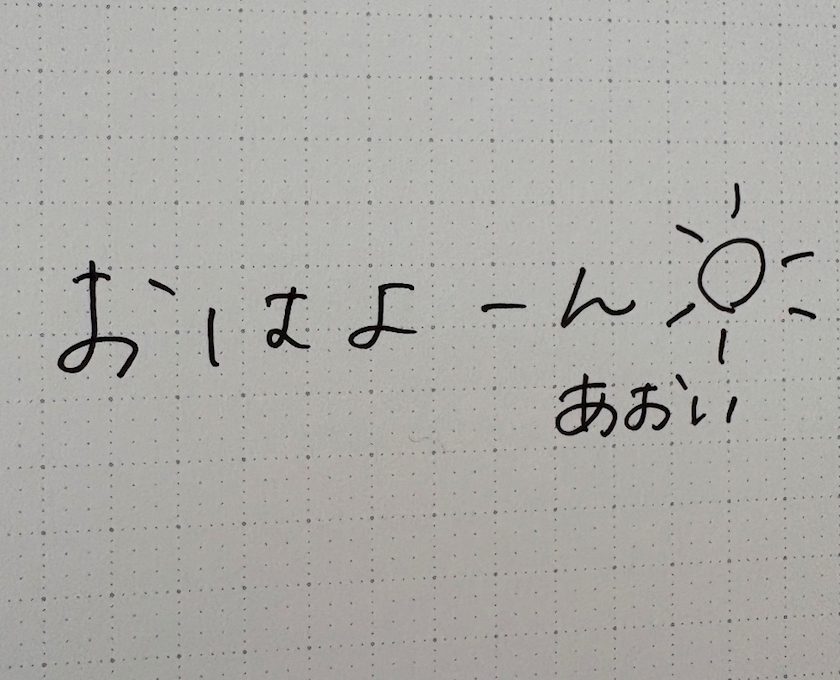 おはよーん
あおい